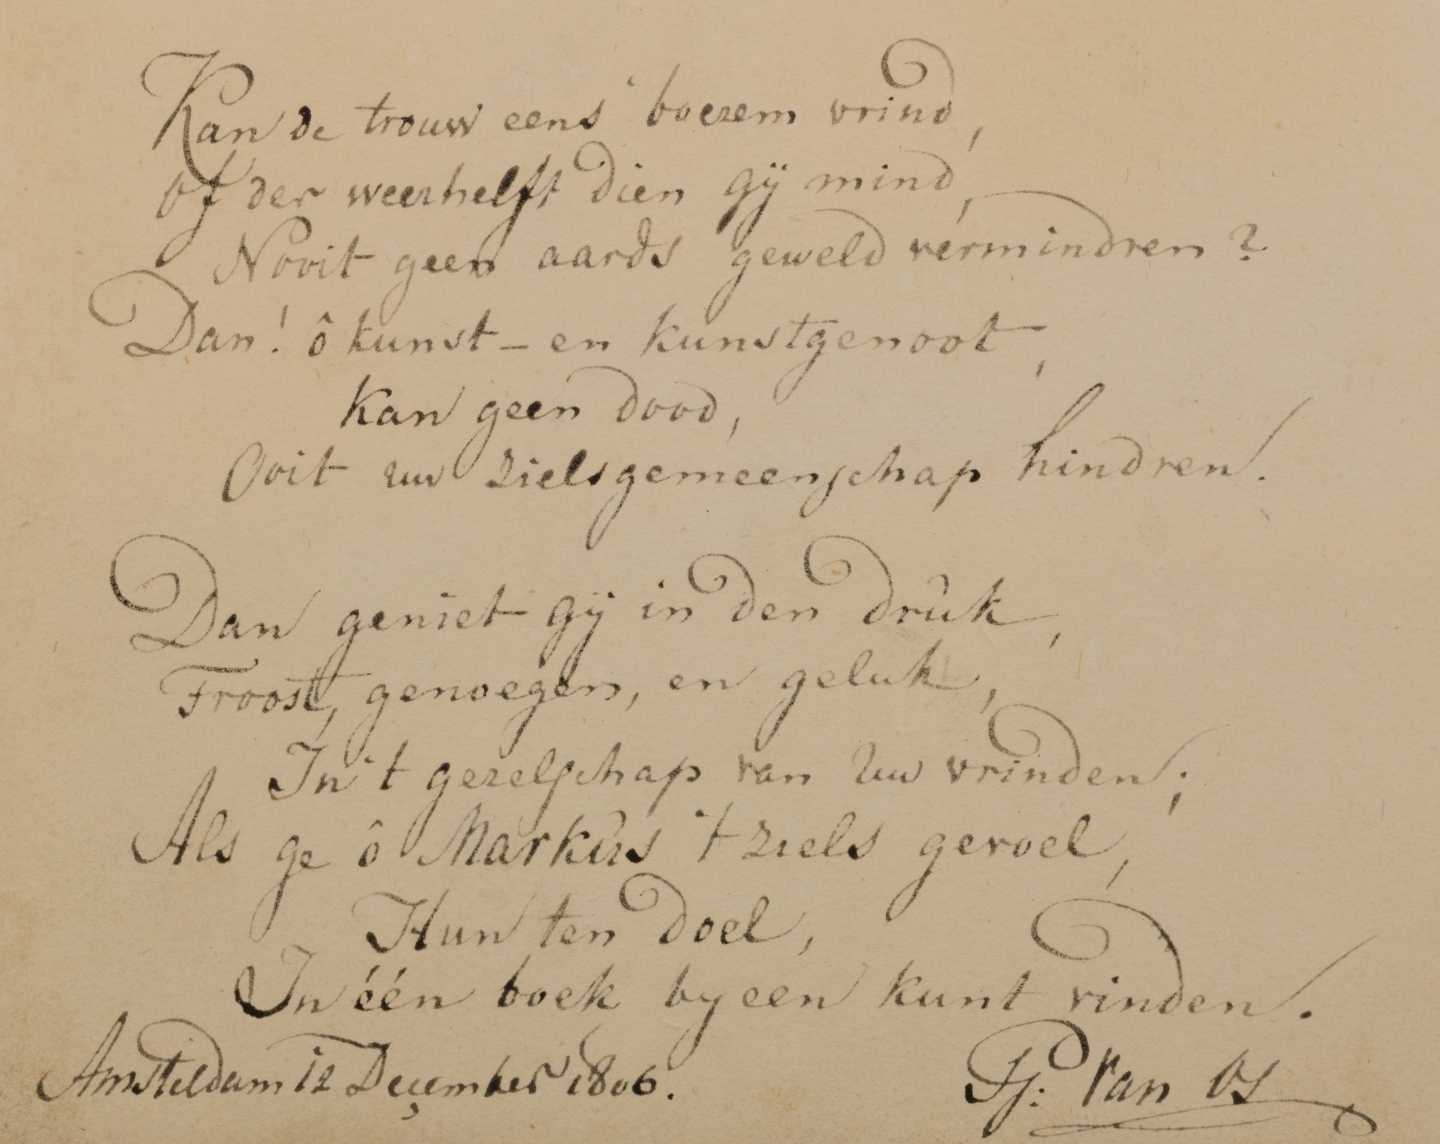 Kan de trouw eens boezem vrind,
Of der weerhelft dien gÿ mind,
Nooit geen aards geweld vermindren?
Dan! ô kunst- en kunstgenoot,
Kan geen dood,
Ooit uw zielsgemeenschap hindren.
Dan geniet gÿ in den drŭk,
Troost, genoegen, en geluk,
In 't gezelschap van Uw vrinden;
Als ge ô Markŭs 't ziels gevoel,
Hun ten doel,
In één boek byeen kunt vinden.
Amsteldam 12 December 1806.
Van Os